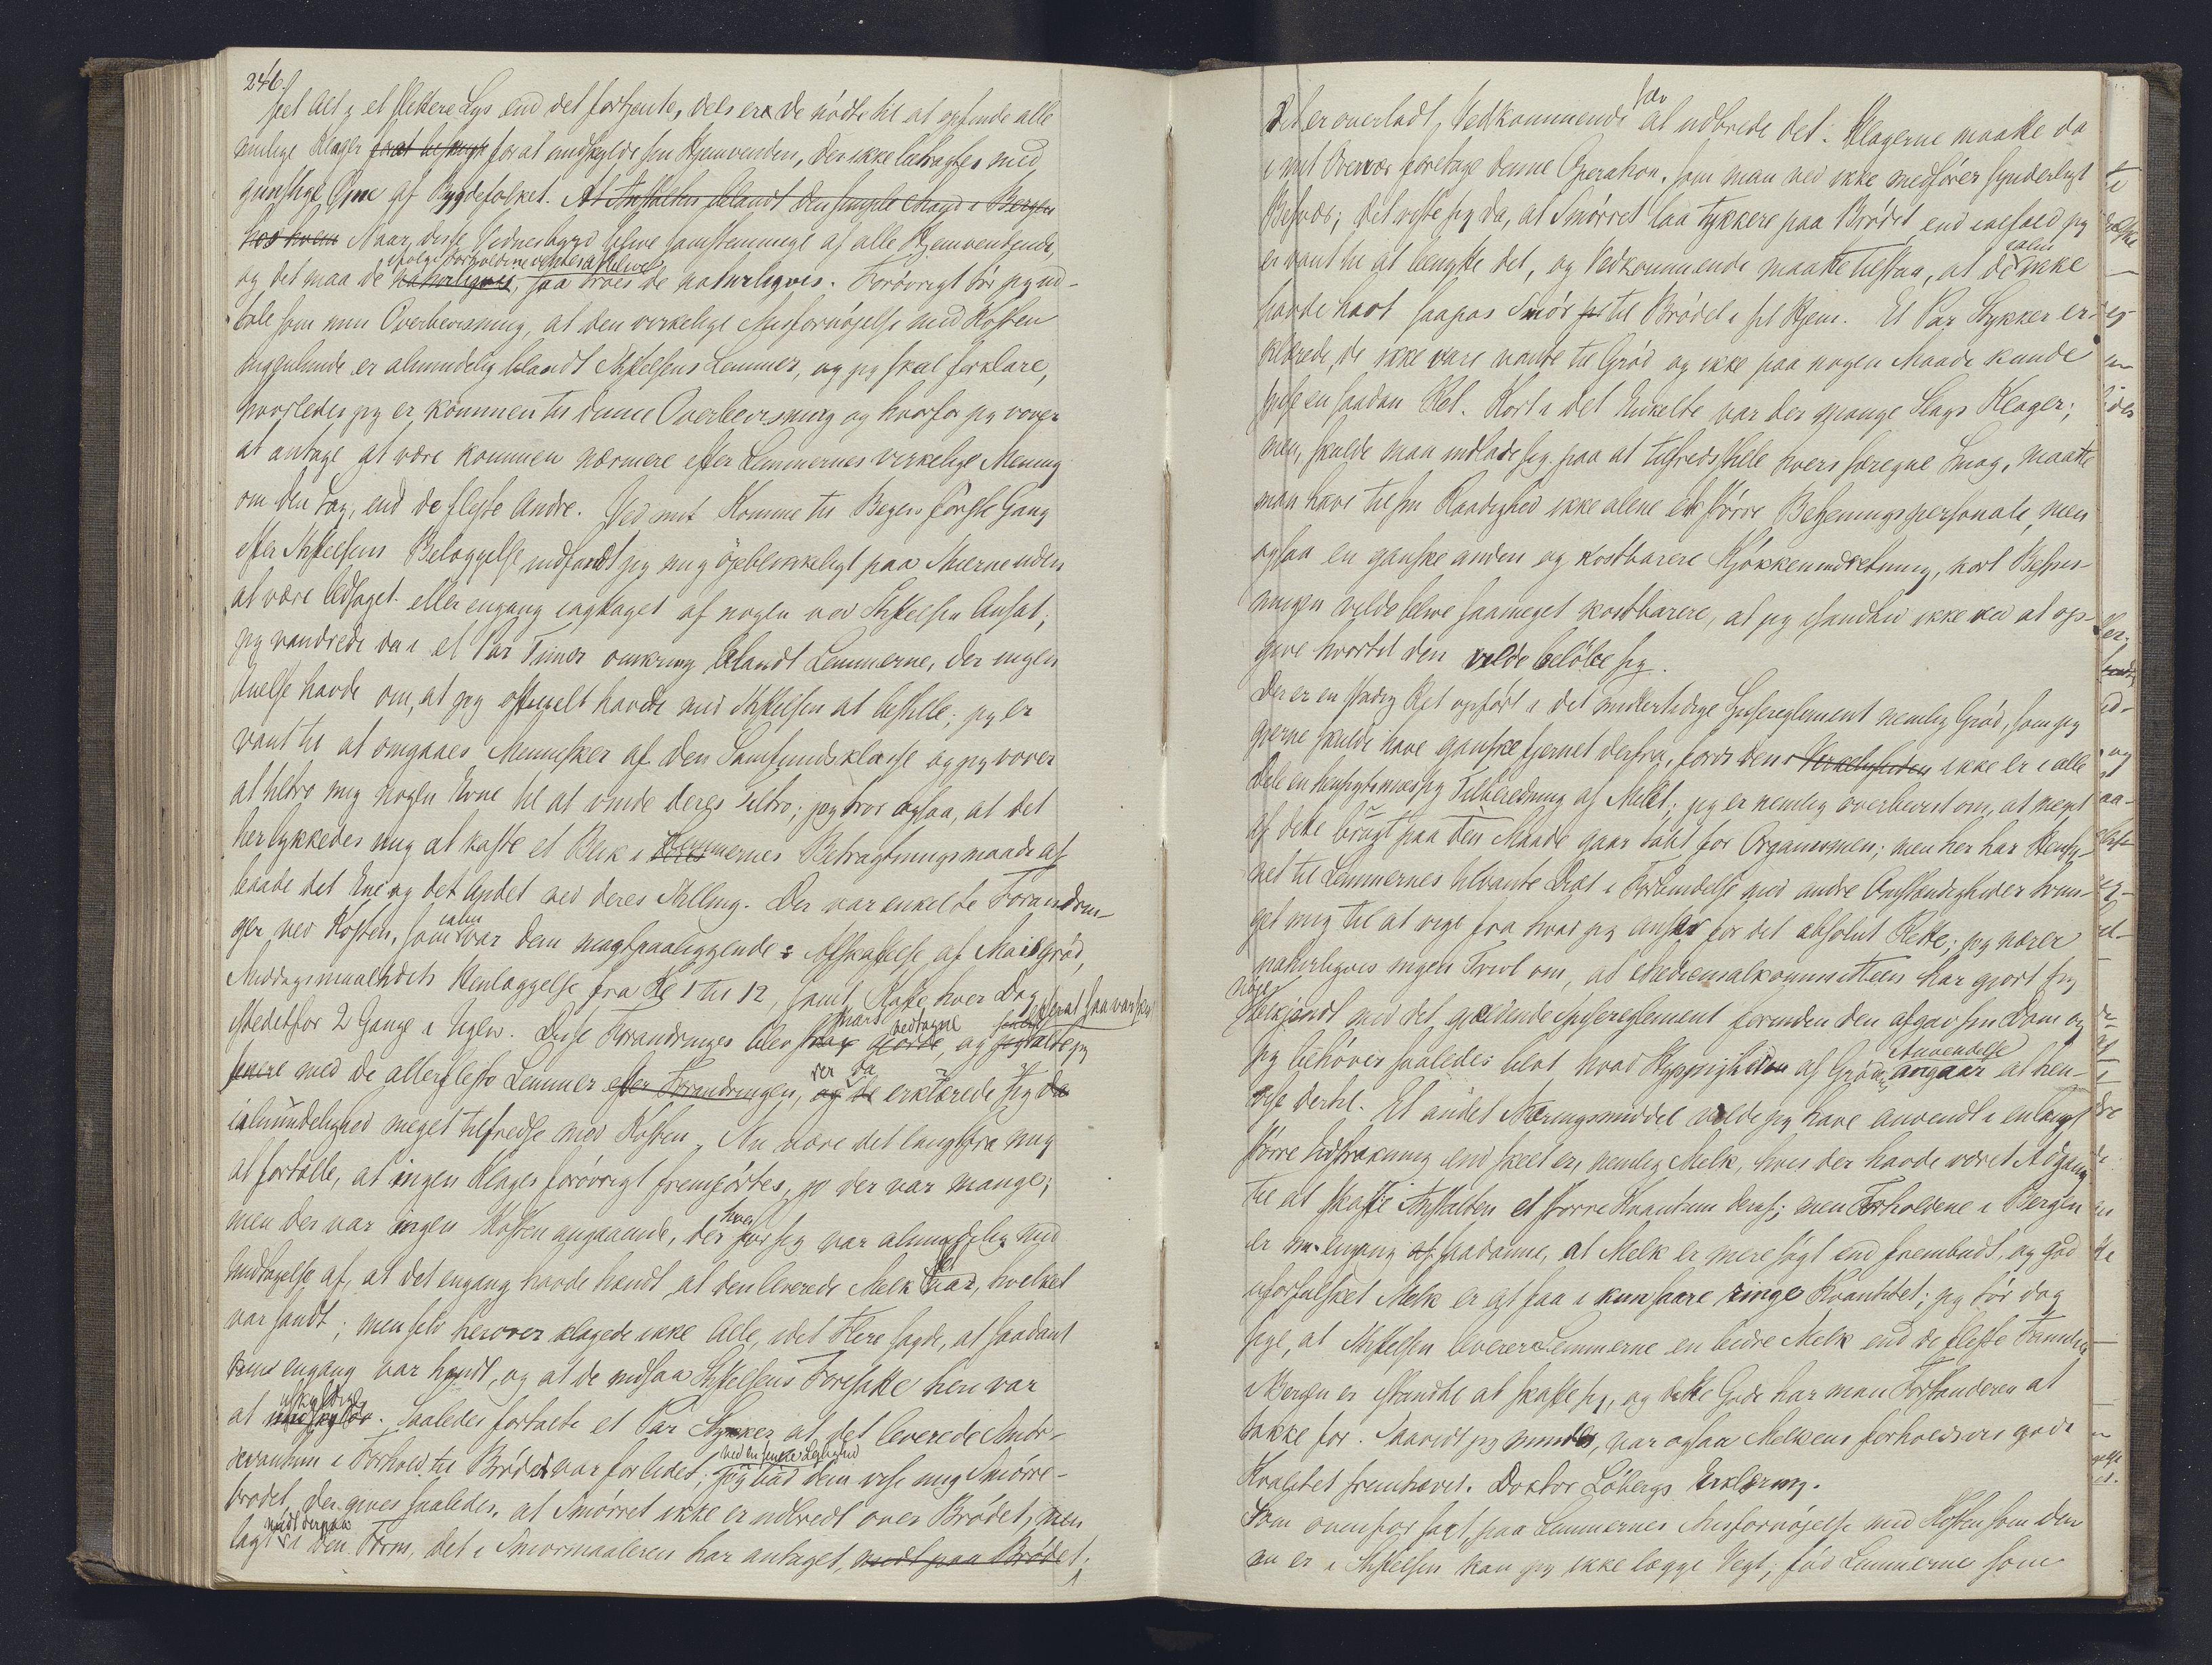 246.
stet Alt i et slettere Lys end det fortjente, dels ere de nødte til at opfinde alle
mulige Klager for at undskylde sin Hjemvenden, der ikke betragtes med
gunstige Øine af Bygdefolket. At Anstalten blandt den simple Mand i Bergen
hos hvem Naar disse Vidnesbyrd blive samstemmige af alle Hjemvendende,
ifølge Forholdene
og det maa de naturligvis, saa troes de naturligvis. Forøvrigt bør jeg ud-
tale som min Overbevisning, at den virkelige Misfornøjelse med Kosten
ingenlunde er almindelig blandt Stiftelsens Lemmer, og jeg skal forklare,
hvorledes jeg er kommen til denne Overbevisning og hvorfor jeg vover
at antage at være kommen nærmere efter Lemmernes virkelige Mening
om den Sag, end de fleste Andre. Ved mit Komme til Bergen første Gang
efter Stiftelsens Belæggelse indfandt jeg mig øjeblikkeligt paa Stuerne uden
at være ledsaget eller engang iagttaget af nogen ved Stiftelsen Ansat;
jeg vandrede da i et Par Timer omkring blandt Lemmerne, der ingen
Anelse havde om, at jeg officielt havde med Stiftelsen at bestille; jeg er
vant til at omgaaes Mennesker af den Samfundsklasse og jeg vover
at tiltro mig nogen Evne til at vinde deres Tiltro; jeg tror ogsaa, at det
her lykkedes mig at kaste et Blik i Lemmernes Betragtningsmaade af
baade det Ene og det Andet ved deres Stilling. Der var enkelte Forandrin-
calm
ger ved Kosten, som var dem magtpaaliggende: Afskaffelse af Maisgrød,
Middagsmaaltidets Henlæggelse fra Kl 1 til 12, samt Kaffe hver Dag
istedetfor 2 Gange i Ugen. Disse Forandringer blev snart gjorde vedtagne, og efterat saa var skeet talte jeg
senere med de allerfleste Lemmer efter Forandringen, og de der da erklærede sig da
ialmindelighed meget tilfredse med Kosten. Nu være det langtfra mig
at fortælle, at ingen Klager forøvrigt fremførtes, jo der var mange;
men der var ingen Kosten angaaende, der hver for sig var almindelig med
Undtagelse af, at det engang havde hændt at den leverede Melk var, hvilket
var sandt; men selv herover klagede ikke Alle, idet Flere sagde, at saadant
kun engang var hændt, og at de indsaa Stiftelsens Foresatte heri var
at undskylde uskyldige. Saaledes fortalte et Par Stykker at det leverede Smør-
kvantum i Forhold til Brødet var for lidet; jeg bad dem ved en senere Leilighed vise mig Smørre-
brødet, der gives saaledes, at Smørret ikke er udbredt over Brødet, men
lagt midt derpaa i den Form, det i Smørmaaleren har antaget, midt paa Brødet;
det er overladt Vedkommende selv at udbrede det. Klagerne maatte da
i mit Overvær foretage denne Operation, som man ved ikke medfører synderligt
Besvær; det viste sig da, at Smørret laa tykkere paa Brødet end ialfald jeg
er vant til at benytte det, og Vedkommende maatte tilstaa, at de calm ikke
havde havt saapas Smør til Brødet i sit Hjem. Et Par Stykker er-
klærede, de ikke vare vante til Grød og ikke paa nogen Maade kunde
spise en saadan Ret. Kort i det Enkelte var der mange Slags Klager;
men, skulde man indlade sig paa at tilfredsstille hvers særegne Smag, maatte
man have til sin Raadighed ikke alene et større Betjeningspersonale, men
ogsaa en ganske anden og kostbarere Kjøkkenindretning, kort Bespis-
ningen vilde blive saameget kostbarere, at jeg i Sandhed ikke ved at op-
give hvortil den vilde beløbe sig.
Der er en stadig Ret opført i det midlertidige Spisereglement nemlig Grød, som jeg
gjerne skulde have ganske fjernet derfra, fordi den i Virkeligheden ikke er i alle
Dele en hensigtsmæssig Tilberedning af Melet; jeg er nemlig overbevist om, at meget
af dette brugt paa den Maade gaar tabt for Organismen; men her har Hensy-
net til Lemmernes tilvante Diæt i Forbindelse med andre Omstændigheder tvun-
get mig til at vige fra hvad jeg anser for det absolut Rette; jeg nærer
naturligvis ingen Tvivl om, at Medicinalkommitteen har gjort sig
nøje bekjendt med det gjældende Spisereglement forinden den afgav sin Dom og
jeg behøver saaledes blot hvad Hyppigheden af Grødens Anvendelse angaar at hen-
vise dertil. Et andet Næringsmiddel vilde jeg have anvendt i en langt
større Udstrækning end skeet er, nemlig Melk, hvis der havde været Adgang
til at skaffe Anstalten et større Kvantum deraf; men Forholdene i Bergen
er nu engang saadanne, at Melk er mere søgt end frembudt, og god
uforfalsket Melk er at faa i kun saare ringe Kvantitet; jeg tør dog
sige, at Stiftelsen leverer Lemmerne en bedre Melk end de fleste Familier
i Bergen er istandtil at skaffe sig, og dette Gode har man Forstanderen at
takke for. Saavidt jeg mindes, var ogsaa Melkens forholdsvis gode
Kvalitet fremhævet. Doktor Løbergs Erklæring.
Som ovenfor sagt, paa Lemmernes Misfornøjelse med Kosten som den
nu er i Stiftelsen kan jeg ikke lægge Vegt; fød Lemmerne som